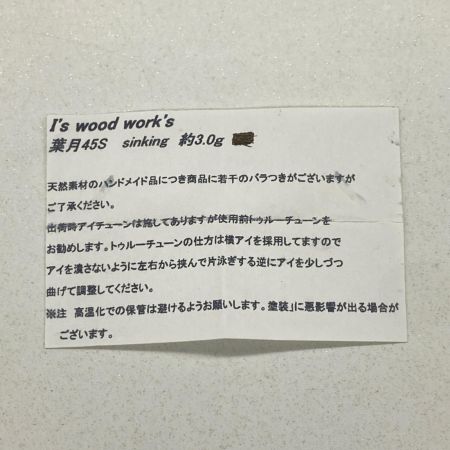 I's wood work's
葉月45S sinking 約3.0g
天然素材のハンドメイド品につき商品に若干のバラつきがございますが
ご了承ください。
出荷時アイチューンは施してありますが使用前トゥルーチューンを
お勧めします。トゥルーチューンの仕方は横アイを採用してますので
アイを潰さないように左右から挟んで片泳ぎする逆にアイを少しづつ
曲げて調整してください。
※注 高温化での保管は避けるようお願いします。塗装」に悪影響が出る場合が
ございます。